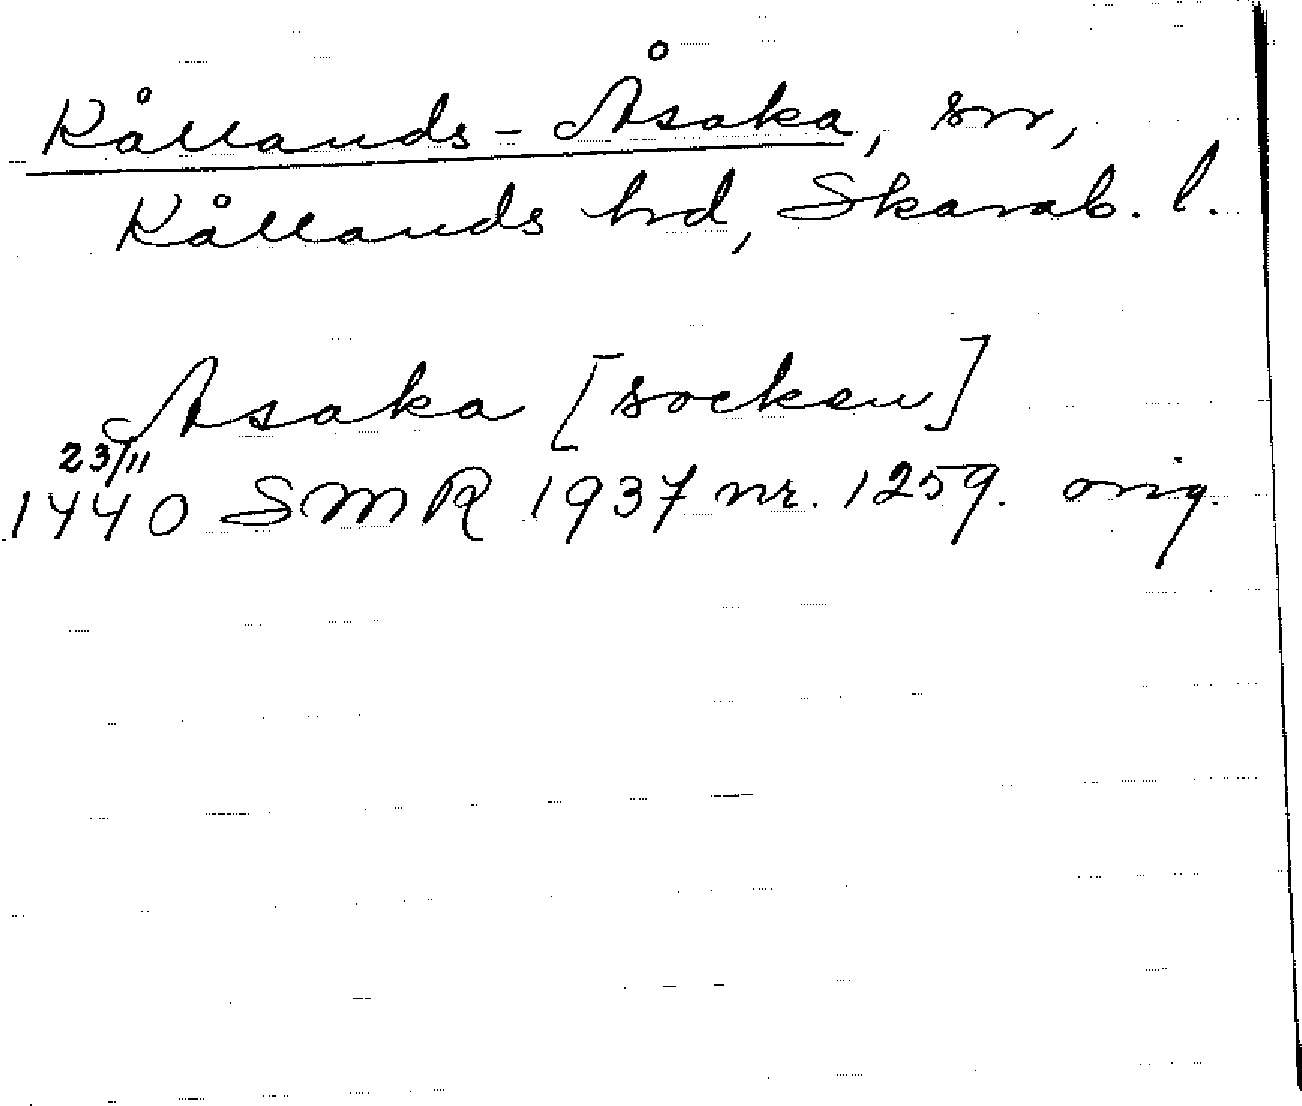 Kållands-Åsaka, sn,
Kållands hd, Skarab. l.
Asaka [socken]
23/11
1440 SMR 1937 nr. 1259. orig.